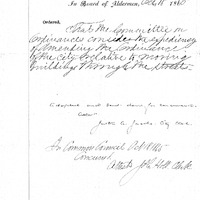 In Board of Aldermen, Oct 15 1860
Ordered,
That the Committee on
Ordinances consider the expediency
of amending the Ordinance
of the City relative to moving
buildings through the streets.
Adopted and sent down for concurrence.
Attest
In Common Council Oct
Concurred.
Attest,